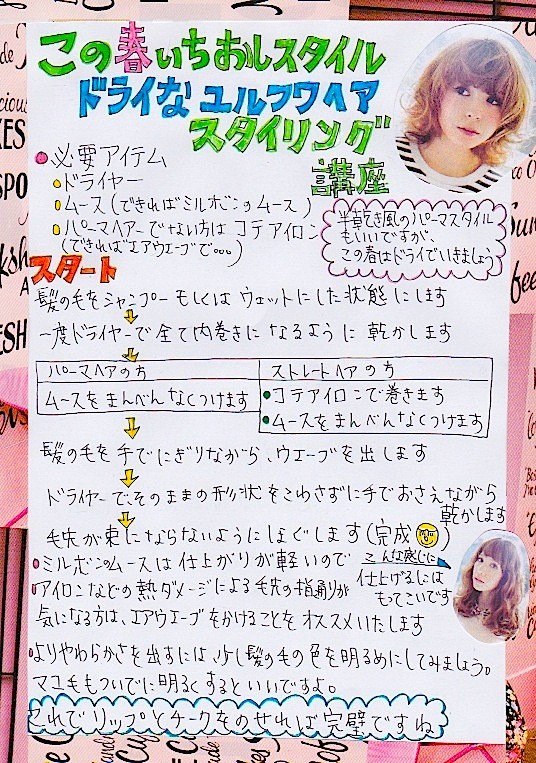 この春いちおしスタイル
ドライなユルフワヘア
スタイリング
講座
必要アイテム
ドライヤー
ムース(できればミルボンのムース)
パーマヘアーでない方はコテアイロン
(できればエアウエーブで。。。)
半乾き風のパーマスタイル
もいいですが、
この春はドライでいきましょう
スタート
髪の毛をシャンプーもしくはウェットにした状態にします
一度ドライヤーで全て内巻きになるように乾かします
パーマヘアの方
ストレートヘアの方
ムースをまんべんなくつけます
コテアイロンで巻きます
ムースをまんべんなくつけます
髪の毛を手でにぎりながら、ウエーブを出します
ドライヤーでそのままの形状をこわさずに手でおさえながら
乾かします
毛先が束にならないようにほぐします(完成)
ミルボンのムースは仕上がりが軽いので
こんな感じに
仕上げるには
もってこいです
アイロンなどの熱ダメージによる毛先の指通りが
気になる方は、エアウエーブをかけることをオススメいたします
よりやわらかさを出すには、少し髪の毛の色を明るめにしてみましょう。
マユ毛もついでに明るくするといいですよ。
これでリップとチークをのせれば完璧ですね